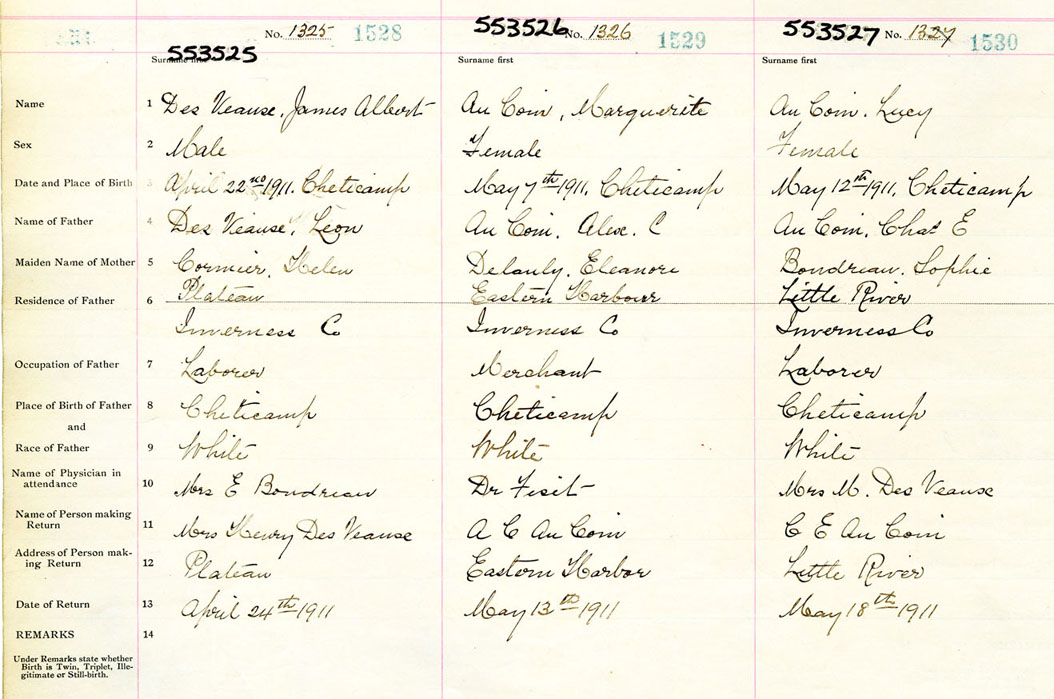 No. 1325 1528 553526 No. 1326 1529 553527 No. 1327 1530
553525
Surname first Surname first Surname first
Name 1 Des Veause, James Albert Au Coin, Marguerite Au Coin. Lucy
Sex 2 Male Female Female
Date and Place of Birth 3 April 22nd 1911. Cheticamp May 7th 1911, Cheticamp May 12th 1911, Cheticamp
Name of Father 4 Des Veause, Leon Au Coin. Alex. C Au Coin, Chas E
Maiden Name of Mother 5 Cormier, Helen Eleanore Boudreau. Sophie
Residence of Father 6 Plateau Eastern Harbour Little River
Inverness Co Inverness Co Inverness Co
Occupation of Father 7 Laborer Merchant Laborer
Place of Birth of Father 8 Cheticamp Cheticamp Cheticamp
and
Race of Father 9 White White White
Name of Physician in
attendance 10 Mrs E Boudreau Dr Mrs M. Des Veause
Name of Person making
Return 11 Mrs Henry Des Veause A C Au Coin C E Au Coin
Address of Person mak-
ing Return 12 Plateau Eastern Harbor Little River
Date of Return 13 April 24th 1911 May 13th 1911 May 18th 1911
REMARKS 14
Under Remarks state whether
Birth is Twin, Triplet, Ille-
gitimate or Still-birth.